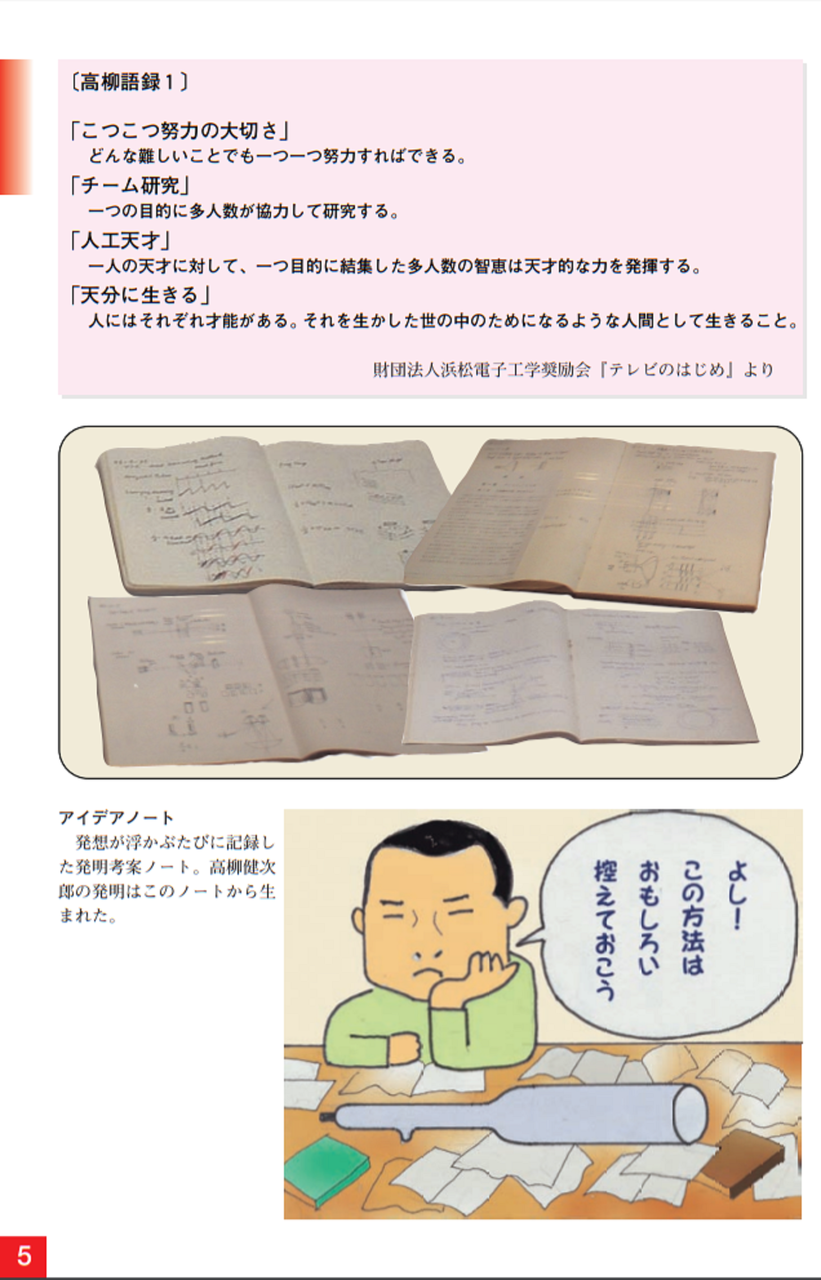 〔高柳語録1〕
「こつこつ努力の大切さ」
どんな難しいことでも一つ一つ努力すればできる。
「チーム研究」
一つの目的に多人数が協力して研究する。
「人工天才」
一人の天才に対して、一つ目的に結集した多人数の智恵は天才的な力を発揮する。
「天分に生きる」
人にはそれぞれ才能がある。それを生かした世の中のためになるような人間として生きること。
財団法人浜松電子工学奨励会『テレビのはじめ』より
アイデアノート
発想が浮かぶたびに記録し
た発明考案ノート。高柳健次
郎の発明はこのノートから生
まれた。
よし!
この方法は
おもしろい
控えておこう
5